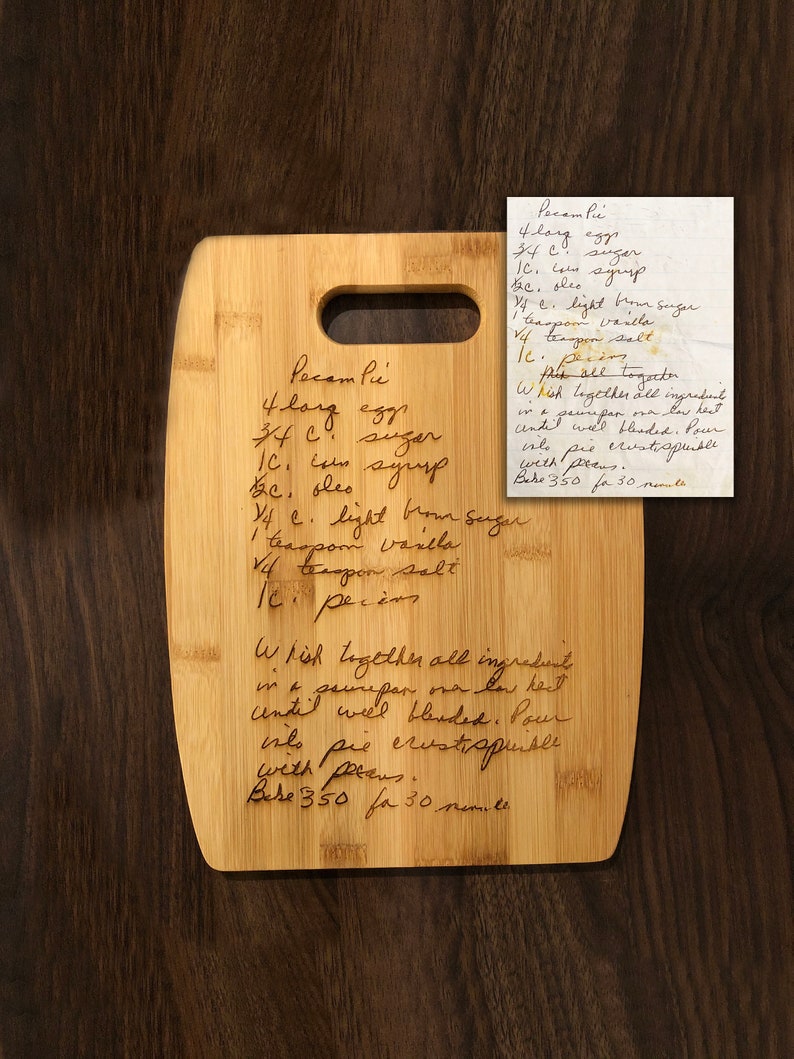 Pecan Pie
4 larg eggs
3/4 C. sugar
1C. corn syrup
1/2C. oleo
1/4 c. light brown sugar
1 teaspoon vanilla
1/4 teaspoon salt
1C. pecans
Whish together all ingredients
in a saucepan over low heat
until well blended. Pour
into pie crust, sprinkle
with pecans.
Bake 350 for 30 minute
Pecan Pie
4 larg eggs
3/4 C. sugar
1C. corn syrup
1/2C. oleo
1/4 C. light brown sugar
1 teaspoon vanilla
1/4 teaspoon salt
1C. pecans
Mix all together
Whish together all ingredients
in a saucepan over low heat
until well blended. Pour
into pie crust, sprinkle
with pecans.
Bake 350 for 30 minute